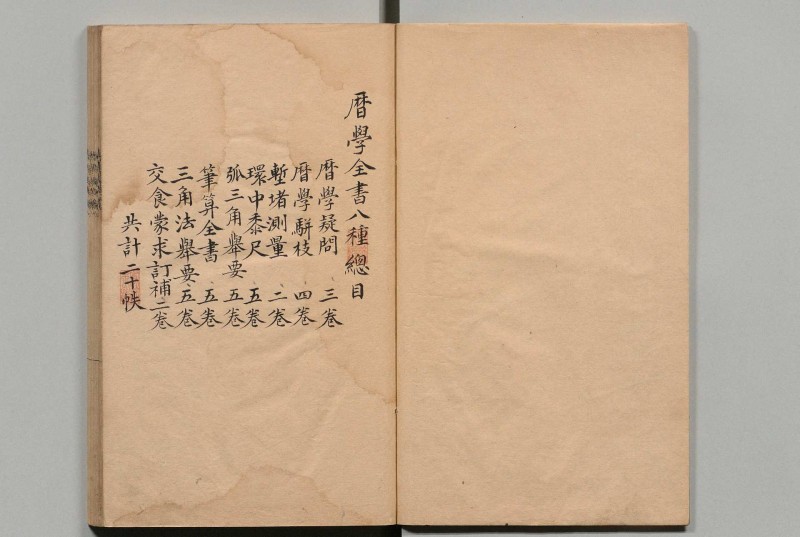 曆學全書八種總目
曆學疑問 三卷
曆學騈枝 四卷
塹堵測量 二卷
環中黍尺 五卷
弧三角舉要 五卷
筆算全書 五卷
三角法舉要 五卷
交食蒙求訂補 二卷
共計二十帙